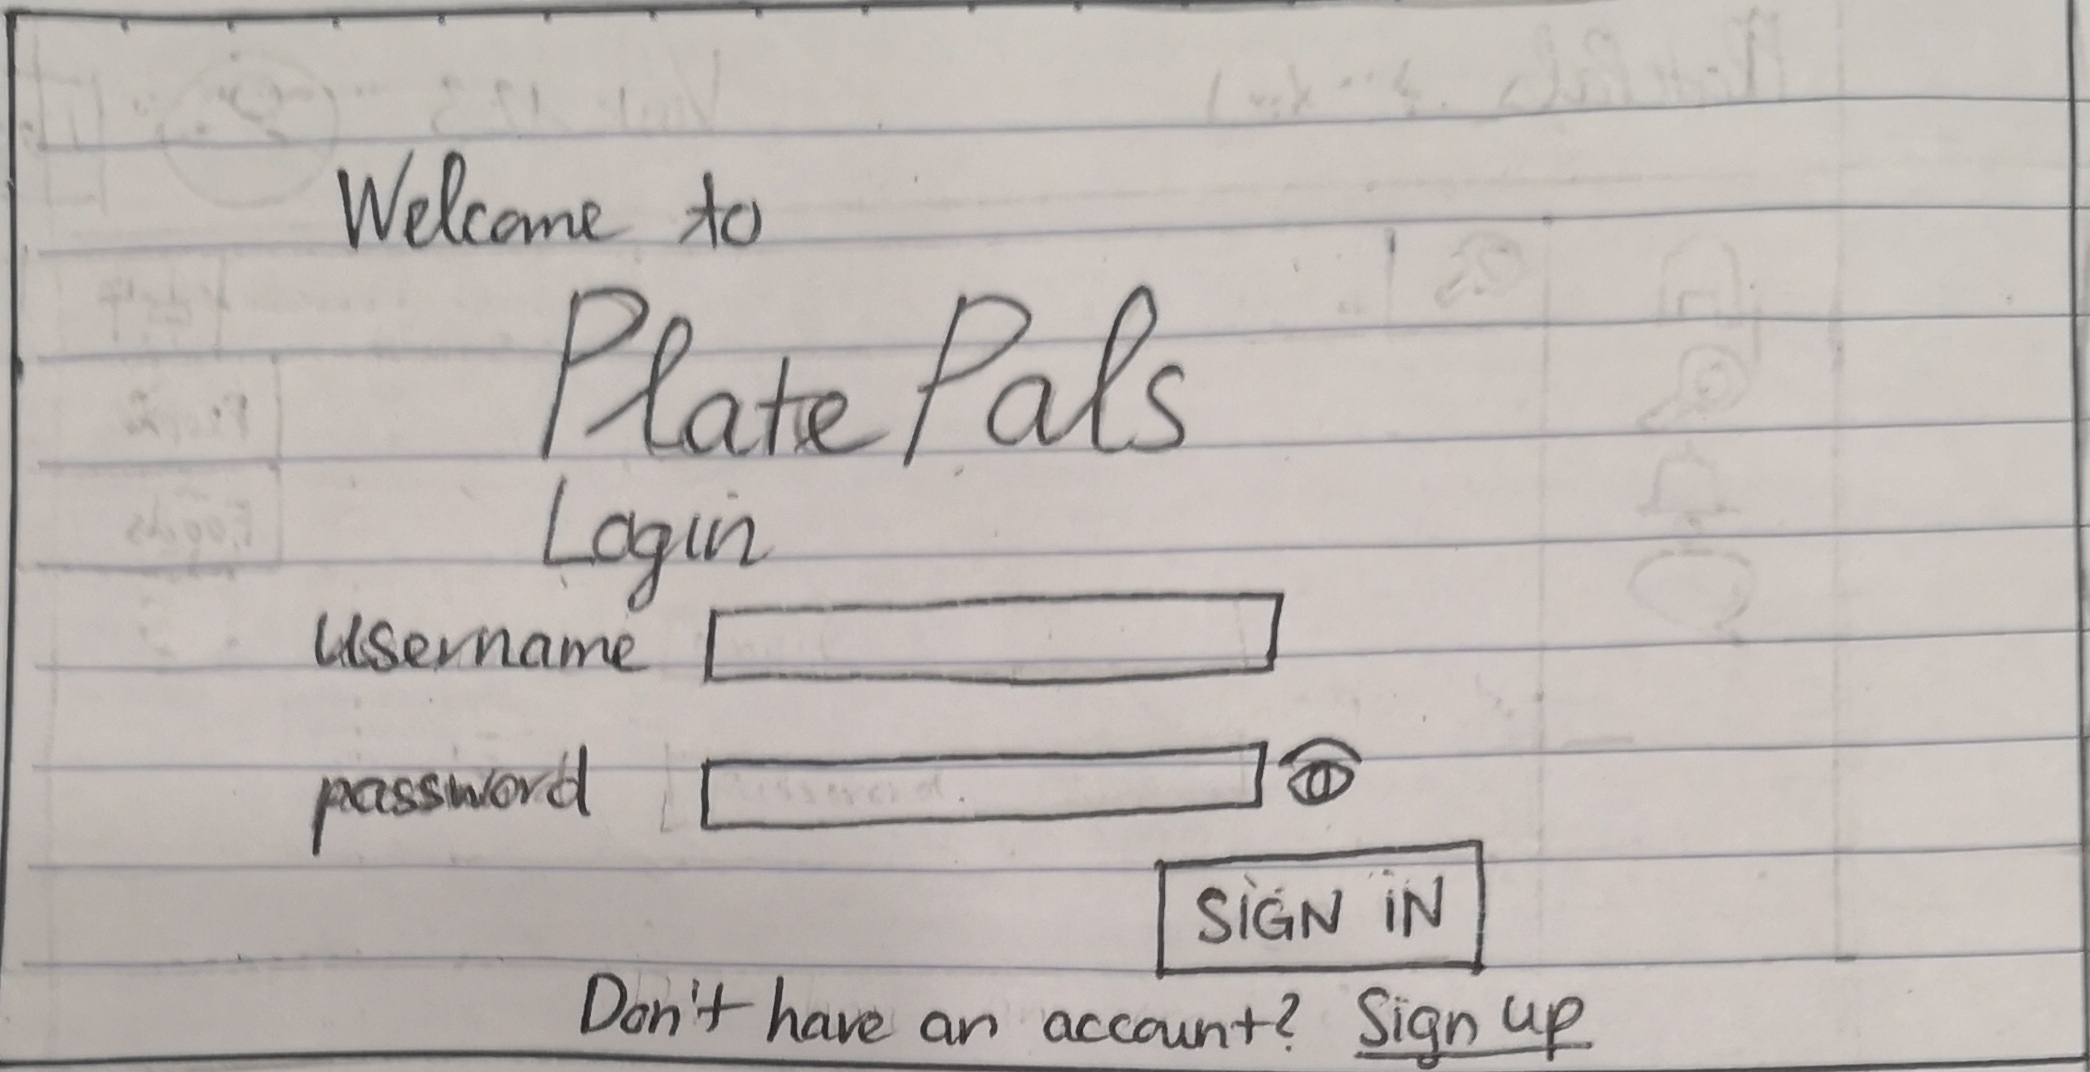 Welcome to
Plate Pals
Login
username
password
SIGN IN
Don't have an account? Sign up